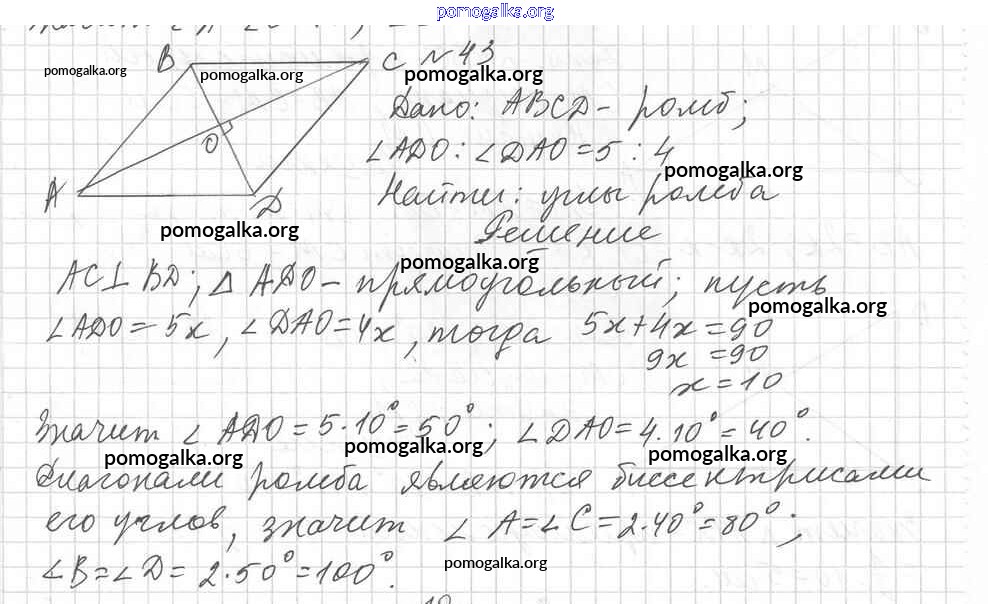 pomogalka.org
B C №43
pomogalka.org pomogalka.org pomogalka.org
Дано: ABCD – ромб;
O
∠ADO : ∠DAO = 5 : 4
pomogalka.org
A D Найти: углы ромба
pomogalka.org
Решение
pomogalka.org
AC⊥BD; △ADO – прямоугольный; пусть
pomogalka.org
∠ADO = 5x, ∠DAO = 4x, тогда 5x + 4x = 90
9x = 90
x = 10
Значит ∠ADO = 5·10° = 50°; ∠DAO = 4·10° = 40°.
pomogalka.org pomogalka.org pomogalka.org
Диагонали ромба являются биссектрисами
его углов, значит ∠A = ∠C = 2·40° = 80°;
∠B = ∠D = 2·50° = 100°.
pomogalka.org